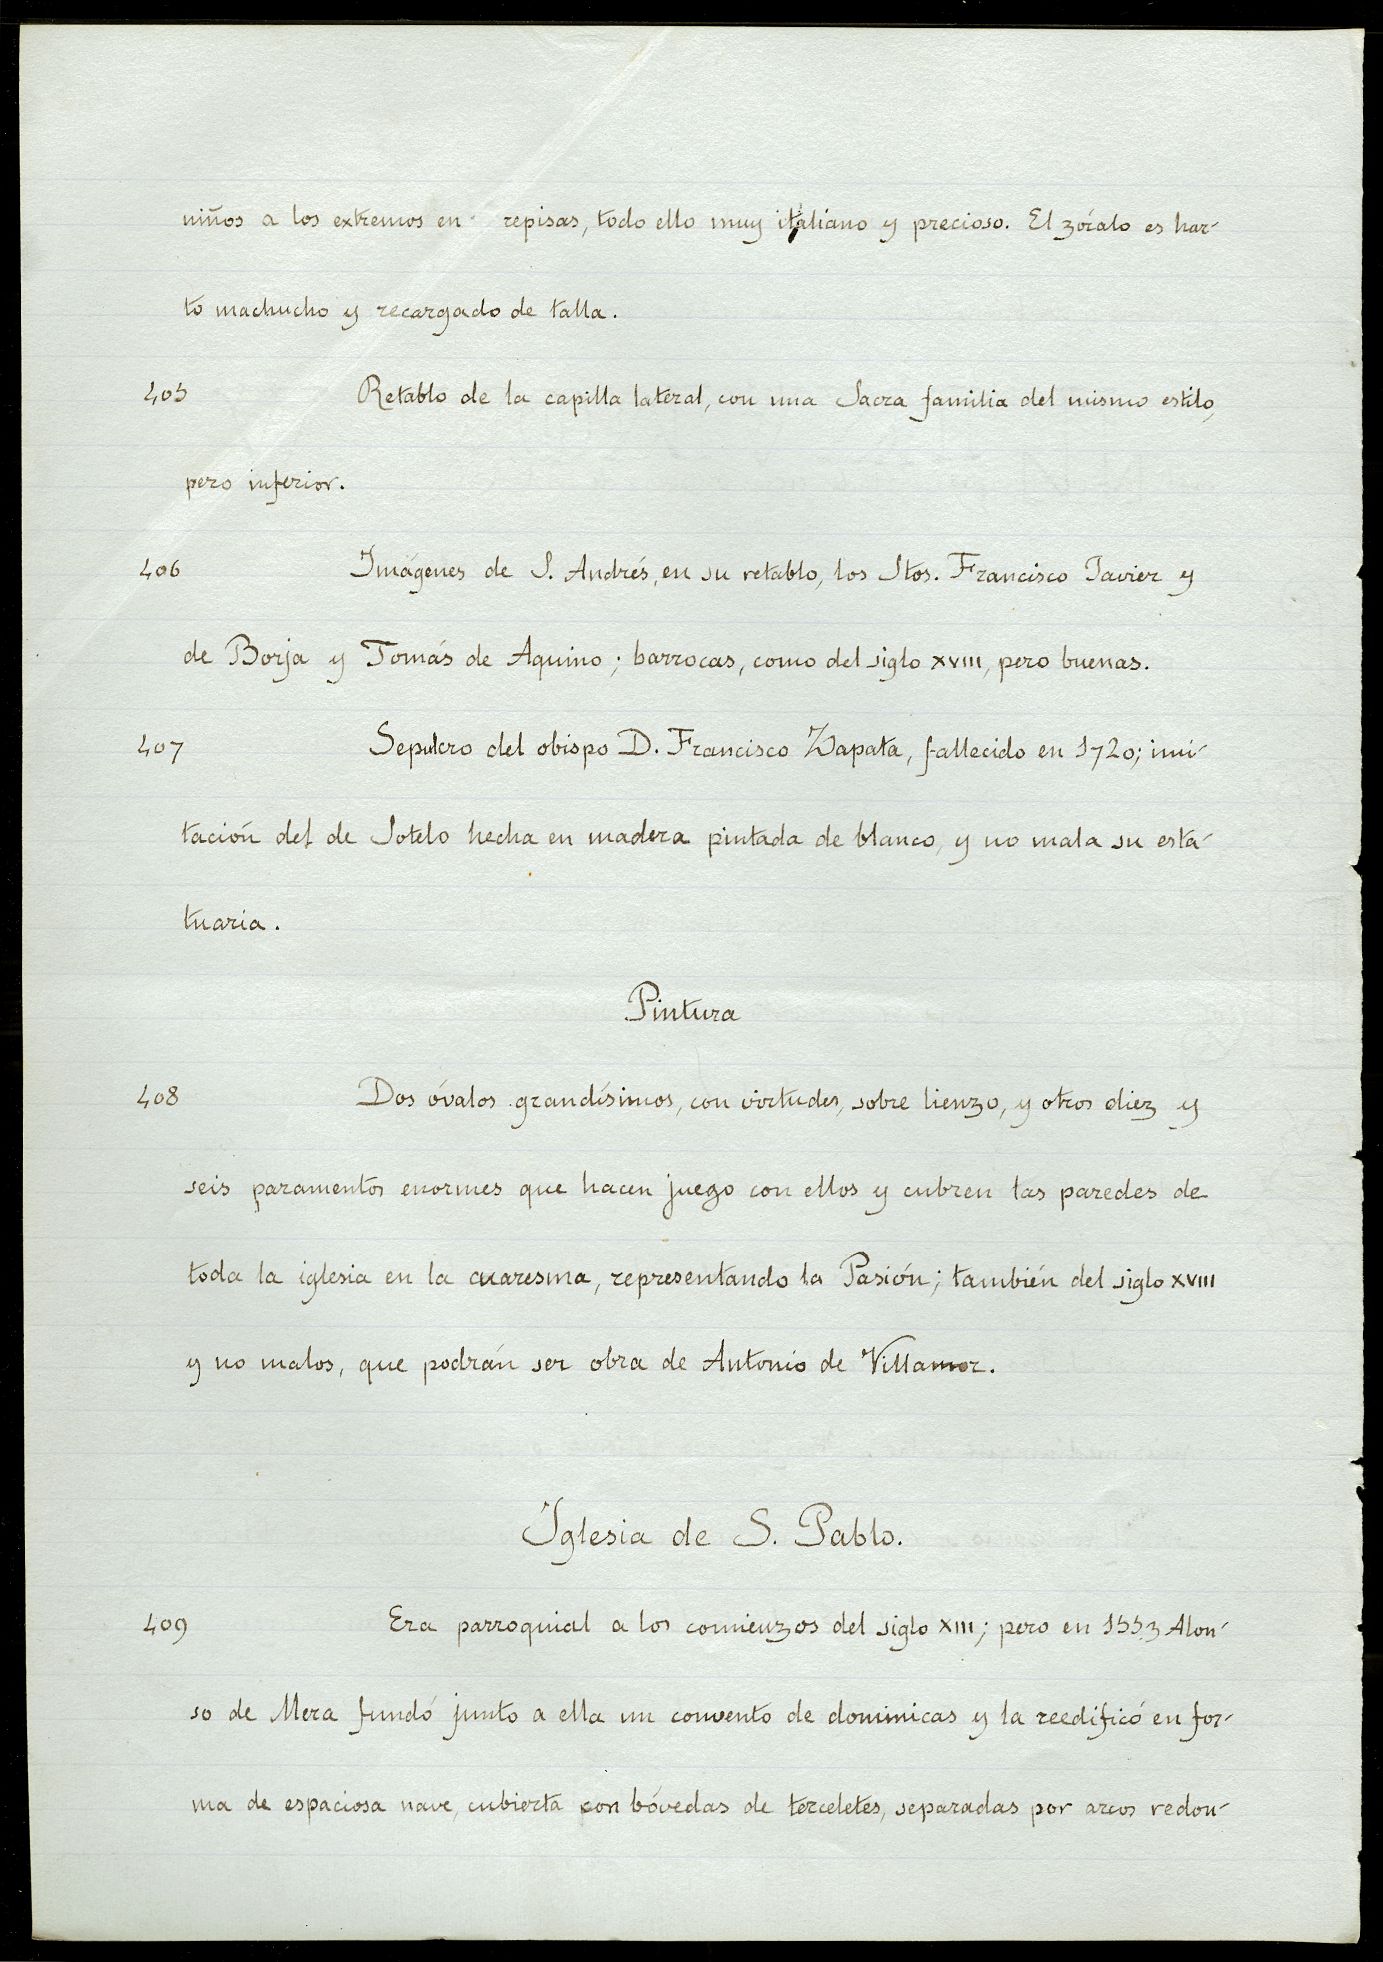 niños a los extremos en repisas, todo ello muy italiano y precioso. El zócalo es har-
to machucho y recargado de talla.
405 Retablo de la capilla lateral, con una Sacra familia del mismo estilo,
pero inferior.
406 Imágenes de S. Andrés, en su retablo, los Stos. Francisco Javier y
de Borja y Tomás de Aquino; barrocas, como del siglo XVIII, pero buenas.
407 Sepulcro del obispo D. Francisco Zapata, fallecido en 1720; imi-
tación del de Sotelo hecha en madera pintada de blanco, y no mala su esta-
tuaria.
Pintura
408 Dos óvalos grandísimos, con virtudes, sobre lienzo, y otros diez y
seis paramentos enormes que hacen juego con ellos y cubren las paredes de
toda la iglesia en la cuaresma, representando la Pasión; también del siglo XVIII
y no malos, que podrán ser obra de Antonio de Villamor.
Iglesia de S. Pablo.
409 Era parroquial a los comienzos del siglo XIII; pero en 1553 Alon-
so de Mera fundó junto a ella un convento de dominicas y la reedificó en for-
ma de espaciosa nave, cubierta con bóvedas de terceletes, separadas por arcos redon-